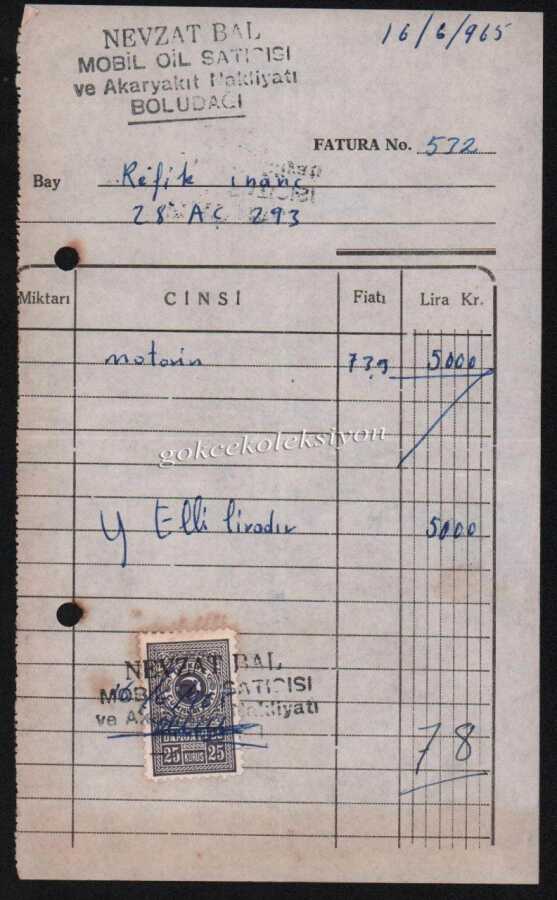 NEVZAT BAL
16/6/965
MOBİL OİL SATICISI
ve Akaryakıt Nakliyatı
BOLUDAĞI
FATURA No. 532
Bay Refik inanç
28 AÇ 293
Miktarı CİNSİ Fiatı Lira Kr.
motorin 73,9 5000
gokcekoleksiyon
Y Elli liradır 5000
NEVZAT BAL
MOBİL SATICISI
ve Nakliyatı
78
25 KURUŞ 25